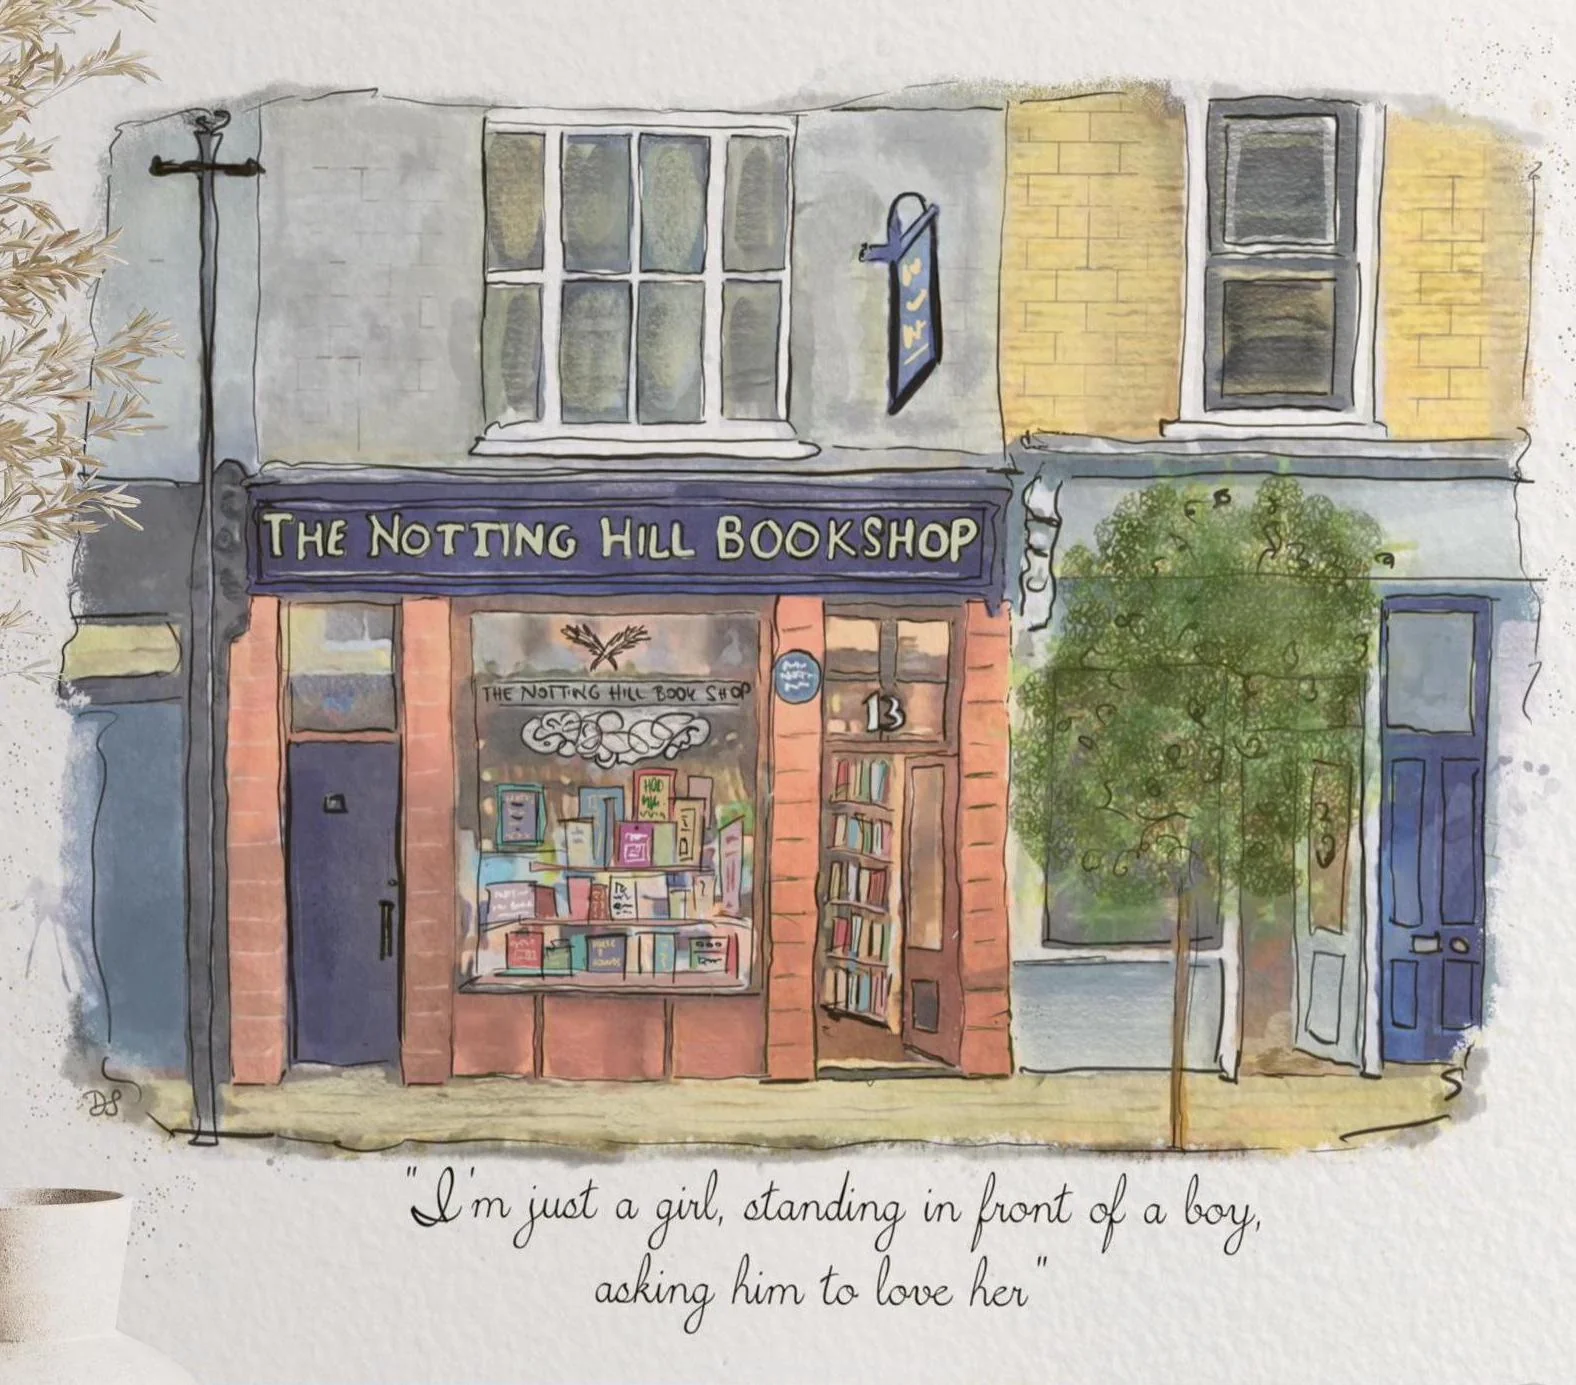 THE NOTTING HILL BOOKSHOP
THE NOTTING HILL BOOK SHOP
13
DS
"I'm just a girl, standing in front of a boy,
asking him to love her"